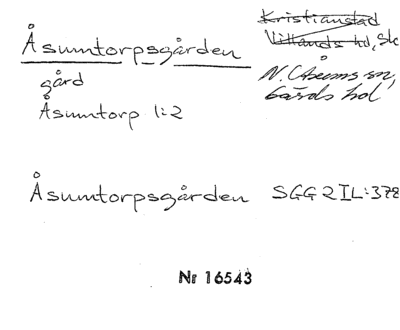 Åsumtorpsgården
Kristianstad
Villands hd, Sk
gård
N. Åsums sn,
Gärds hd
Åsumtorp 1:2
Åsumtorpsgården SGG 2 IL:378
Nr 16543